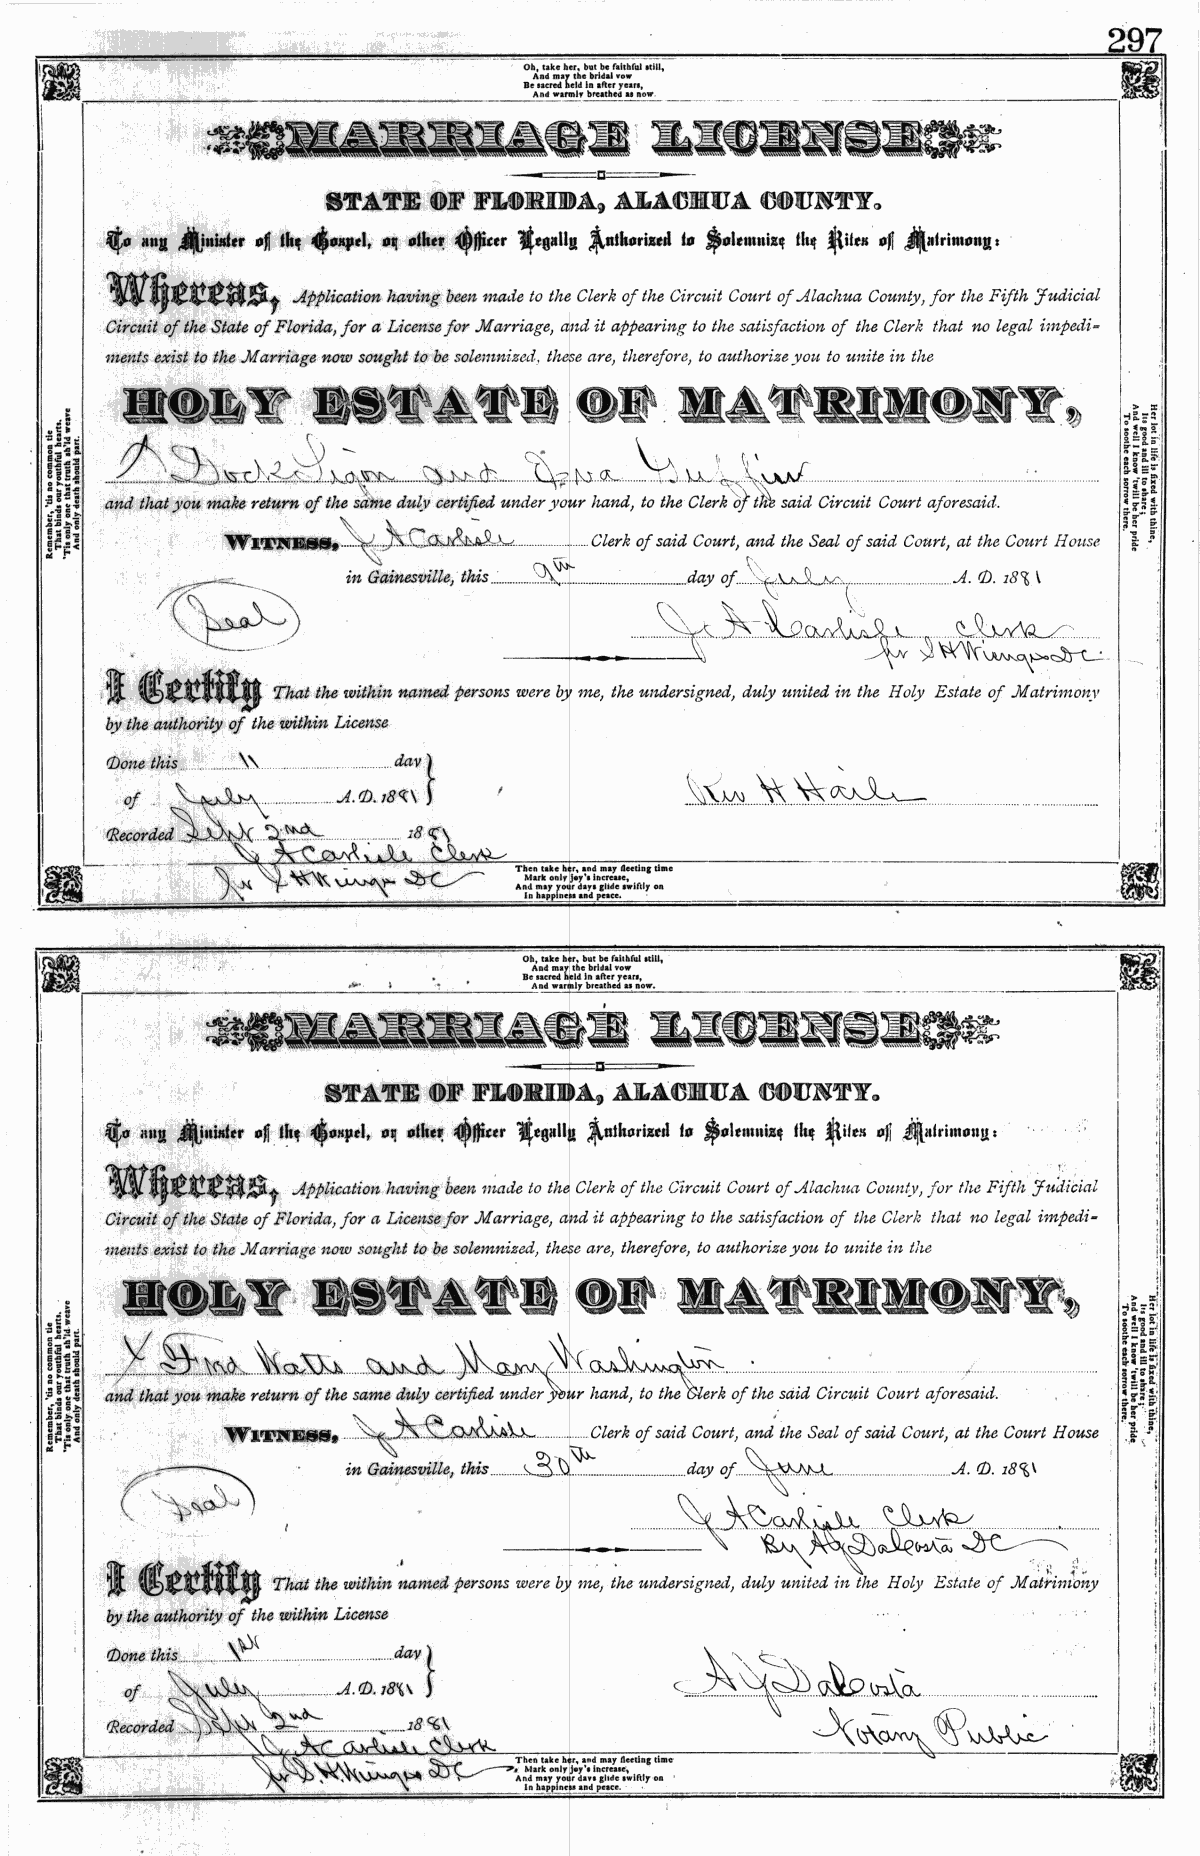 297
Oh, take her, but be faithful still,
And may the bridal vow
Be sacred held in after years,
And warmly breathed as now.
MARRIAGE LICENSE
STATE OF FLORIDA, ALACHUA COUNTY.
To any Minister of the Gospel, or other Officer Legally Authorized to Solemnize the Rites of Matrimony:
Whereas, Application having been made to the Clerk of the Circuit Court of Alachua County, for the Fifth Judicial
Circuit of the State of Florida, for a License for Marriage, and it appearing to the satisfaction of the Clerk that no legal impedi-
ments exist to the Marriage now sought to be solemnized, these are, therefore, to authorize you to unite in the
HOLY ESTATE OF MATRIMONY,
Dock Ligon and
and that you make return of the same duly certified under your hand, to the Clerk of the said Circuit Court aforesaid.
WITNESS, J A Carlisle Clerk of said Court, and the Seal of said Court, at the Court House
in Gainesville, this 9th day of July A. D. 1881
Seal
J A Carlisle Clerk
for S H Wienges DC
I Certify That the within named persons were by me, the undersigned, duly united in the Holy Estate of Matrimony
by the authority of the within License
Done this 11 day
of July A. D. 1881
Rev H Haile
Recorded Sept 2nd 1881
J A Carlisle Clerk
for S H Wienges DC
Then take her, and may fleeting time
Mark only joy's increase,
And may your days glide swiftly on
In happiness and peace.
Remember, 'tis no common tie
That binds our youthful hearts,
'Tis only one that truth sh'ld weave
And only death should part.
Her lot in life is fixed with thine,
Its good and ill to share;
And well I know 'twill be her pride
To soothe each sorrow there.
Oh, take her, but be faithful still,
And may the bridal vow
Be sacred held in after years,
And warmly breathed as now.
MARRIAGE LICENSE
STATE OF FLORIDA, ALACHUA COUNTY.
To any Minister of the Gospel, or other Officer Legally Authorized to Solemnize the Rites of Matrimony:
Whereas, Application having been made to the Clerk of the Circuit Court of Alachua County, for the Fifth Judicial
Circuit of the State of Florida, for a License for Marriage, and it appearing to the satisfaction of the Clerk that no legal impedi-
ments exist to the Marriage now sought to be solemnized, these are, therefore, to authorize you to unite in the
HOLY ESTATE OF MATRIMONY,
X Fred Watts and Mary Washington
and that you make return of the same duly certified under your hand, to the Clerk of the said Circuit Court aforesaid.
WITNESS, J A Carlisle Clerk of said Court, and the Seal of said Court, at the Court House
in Gainesville, this 30th day of June A. D. 1881
Seal
J A Carlisle Clerk
By A J DaCosta DC
I Certify That the within named persons were by me, the undersigned, duly united in the Holy Estate of Matrimony
by the authority of the within License
Done this 1st day
of July A. D. 1881
A J DaCosta
Notary Public
Recorded Sept 2nd 1881
J A Carlisle Clerk
for S. H. Wienges DC
Then take her, and may fleeting time
Mark only joy's increase,
And may your days glide swiftly on
In happiness and peace.
Remember, 'tis no common tie
That binds our youthful hearts,
'Tis only one that truth sh'ld weave
And only death should part.
Her lot in life is fixed with thine,
Its good and ill to share;
And well I know 'twill be her pride
To soothe each sorrow there.